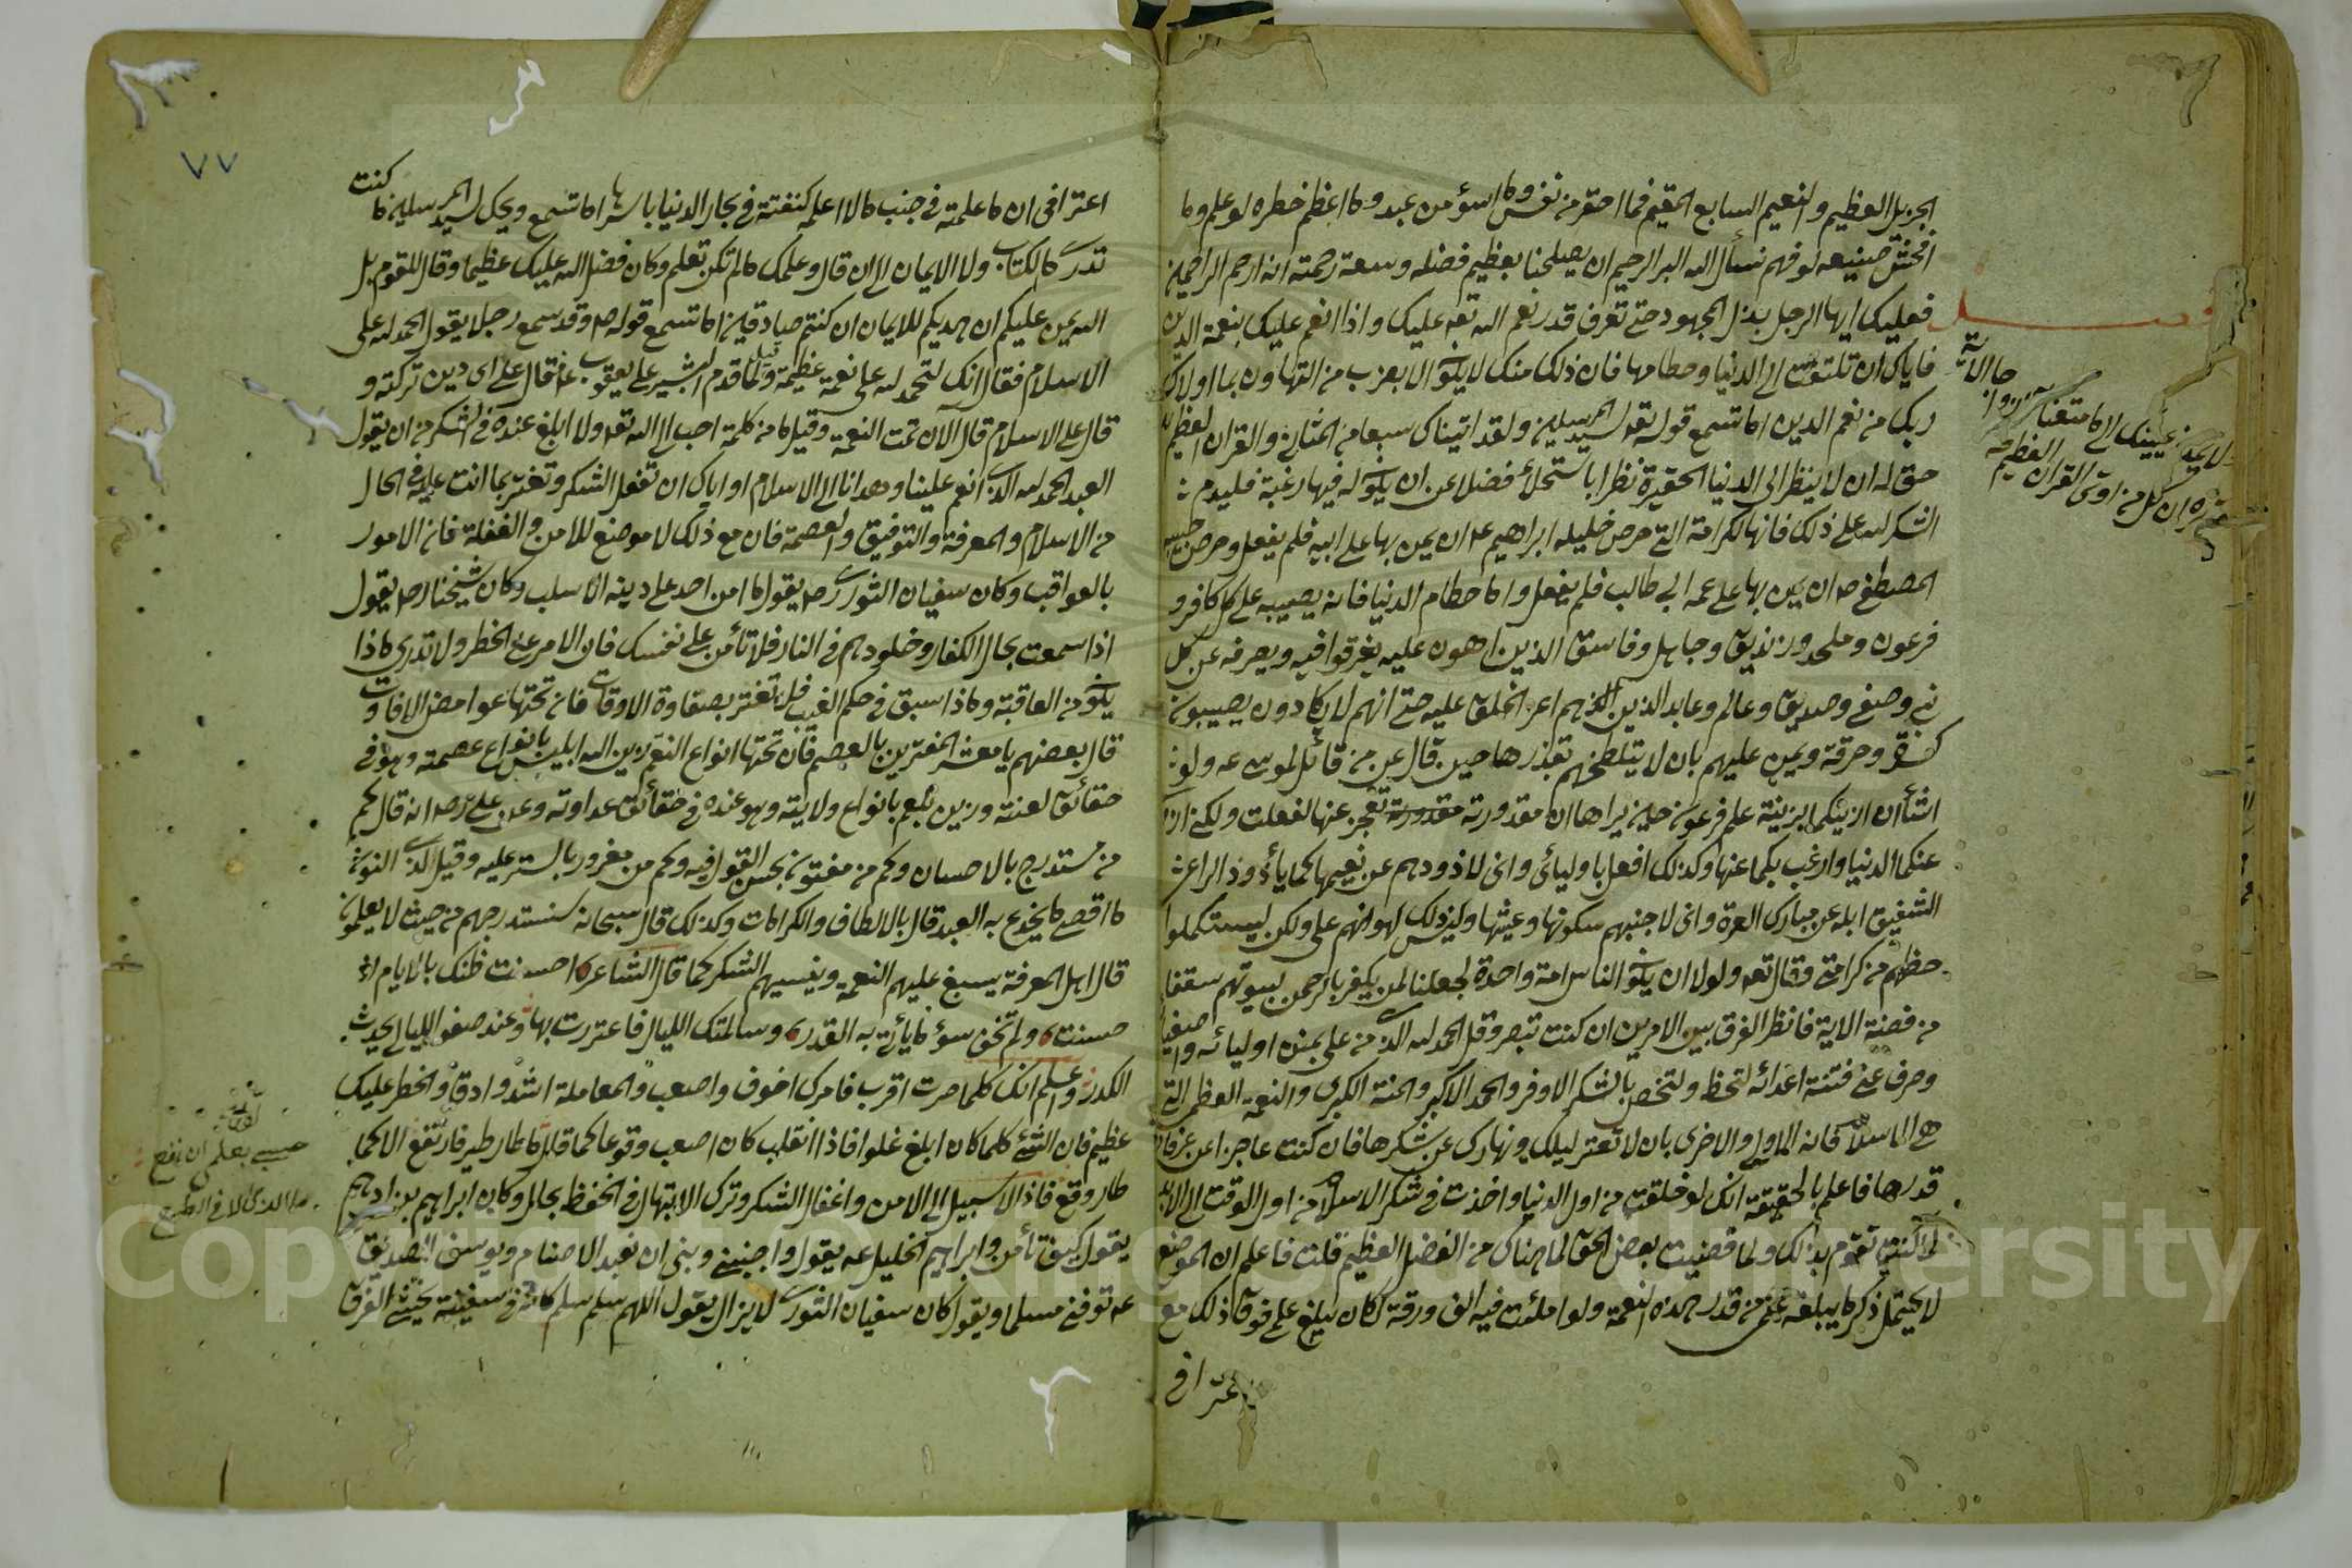 الجزيل العظيم والنعيم السابغ المقيم فما احقر من نفس وما اسوء من عبد وما اعظم خطره لو علم وما
افحش صنيعه لو فهم نسأل الله البر الرحيم ان يصلحنا بعظيم فضله وسعة رحمته انه ارحم الراحمين
فصل فعليك ايها الرجل ببذل المجهود حتى تعرف قدر نعم الله تعه عليك واذا انعم عليك بنعمة الدين
فاياك ان تلتفت الى الدنيا وحطامها فان ذلك منك لا يكون الا بضرب من التهاون بما اولاك
ربك من نعم الدين اما تسمع قوله تعه لسيد المرسلين ولقد اتيناك سبعا من المثاني والقران العظيم
حق له ان لا ينظر الى الدنيا الحقيرة نظرا باستحلاء فضلا عن ان يكون له فيها رغبة فليدم
الشكر لله على ذلك فانها الكرامة التي حرص خليله ابراهيم عه ان يمن بها على ابيه فلم يفعل وحرص حبيبه
المصطفى صه ان يمن بها على عمه ابي طالب فلم يفعل واما حطام الدنيا فانه يصيبه على كل كافر و
فرعون وملحد وزنديق وجاهل وفاسق الذين هم اهون عليه يغرقوا فيه ويصرفه عن كل
نبي وصفي وصديق وعالم وعابد الذين هم اعز الخلق عليه حتى انهم لا يكادون يصيبون
كسرة وخرقة ويمن عليهم بان لا يتلطخهم بقذرها حين قال عز من قائل لموسى عه ولو
اشأ ان ازينكما بزينة علم فرعون حين يراها ان مقدورته تعجز عنها لفعلت ولكن ازوي
عنكما الدنيا وارغب بكما عنها وكذلك افعل باوليائى وانى لاذودهم عن نعيمها كما يذود الراعى
الشفيق ابله عن مبارك العرة وانى لاجنبهم سكونها وعيشها وليس ذلك لهوانهم على ولكن ليستكملوا
حظهم من كرامتى وقال تعه ولولا ان يكون الناس امة واحدة لجعلنا لمن يكفر بالرحمن لبيوتهم سقفا
من فضة الاية فانظر الفرق بين الامرين ان كنت تبصر وقل الحمد لله الذى من على بمنن اوليائه واصفيا
وصرف عنى فتنة اعدائه لتحظ ولتخص بالشكر الاوفر والحمد الاكبر والمنة الكبرى والنعمة العظمى التي
هي الاسلام فانه الاولى والاخرى بان لا تفتر ليلك ونهارك عن شكرها فان كنت عاجزا عن عرفان
قدرها فاعلم بالحقيقة انك لو خلقت من اول الدنيا واخذت في شكر الاسلام من اول الوقت الى الابد
لما كنت تقوم بذلك ولما قضيت بعض الحق لما هناك من الفضل العظيم قلت فاعلم ان الموضع
لا يحتمل ذكر ما يبلغه علمى من قدر هذه النعمة ولو املئت فيه الف ورقة لكان يبلغ علمى فوق ذلك مع
اعترافى
ولا تمدن عينيك الى ما متعنا
ان كل من اوتى القران العظيم
٧٧
اعترافى ان ما علمته في جنب ما لا اعلم كنفثة في بحار الدنيا باسرها اما تسمع ويحك لسيد المرسلين ما كنت
تدرى ما الكتاب ولا الايمان الى ان قال وعلمك ما لم تكن تعلم وكان فضل الله عليك عظيما وقال للقوم بل
الله يمن عليكم ان هديكم للايمان ان كنتم صادقين اما تسمع قوله صه وقد سمع رجلا يقول الحمد لله على
الاسلام فقال انك لتحمد لله على نعمة عظيمة ولما قدم البشير على يعقوب عه قال على اى دين تركته و
قال على الاسلام قال الآن تمت النعمة وقيل ما من كلمة احب الى الله تعه ولا ابلغ عنده في الشكر من ان يقول
العبد الحمد لله الذى انعم علينا وهدانا الى الاسلام او اياك ان تغفل الشكر وتغتر بما انت عليه في الحال
من الاسلام والمعرفة والتوفيق والعصمة فان مع ذلك لا موضع للامن والغفلة فان الامور
بالعواقب وكان سفيان الثورى رحه يقول ما امن احد على دينه الا سلب وكان شيخنا رحه يقول
اذا سمعت بحال الكفار وخلودهم في النار فلا تأمن على نفسك فان الامر على الخطر ولا تدرى ماذا
يكون من العاقبة وماذا سبق في حكم الغيب فلا تغتر بصفاوة الاوقات فان تحتها غوامض الافات و
قال بعضهم يا معشر المغترين بالعصم فان تحتها انواع النقم زين الله ابليس بانواع عصمته وهو في
حقائق لعنته وزين بلعم بانواع ولايته وهو عنده في حقائق عداوته وعن على رضه انه قال كم
من مستدرج بالاحسان وكم من مفتون بحسن القول فيه وكم من مغرور بالستر عليه وقيل لذى النون
ما اقصى ما يخدع به العبد قال بالالطاف والكرامات وكذلك قال سبحانه سنستدرجهم من حيث لا يعلمون
قال اهل المعرفة يسبغ عليهم النعم وينسيهم الشكر كما قال الشاعر احسنت ظنك بالايام اذ
حسنت ولم تخف سوء ما يأتى به القدر وسالمتك الليالى فاغتررت بها وعند صفو الليالى يحدث
الكدر واعلم انك كلما صرت اقرب فامرك اخوف واصعب والمعاملة اشد وادق والخطر عليك
عظيم فان الشئ كلما كان ابلغ علوا فاذا انقلب كان اصعب وقوعا كما قيل ما طار طير فارتفع الا كما
طار وقع فاذا لا سبيل الى الامن واغفال الشكر وترك الابتهال في الحفظ بحال وكان ابراهيم بن ادهم
يقول كيف تأمن وابراهيم الخليل عه يقول واجنبنى وبنى ان نعبد الاصنام ويوسف الصديق
عه توفنى مسلما ويقول كان سفيان الثورى لا يزال يقول اللهم سلم سلم كانه في سفينة يخشى الغرق